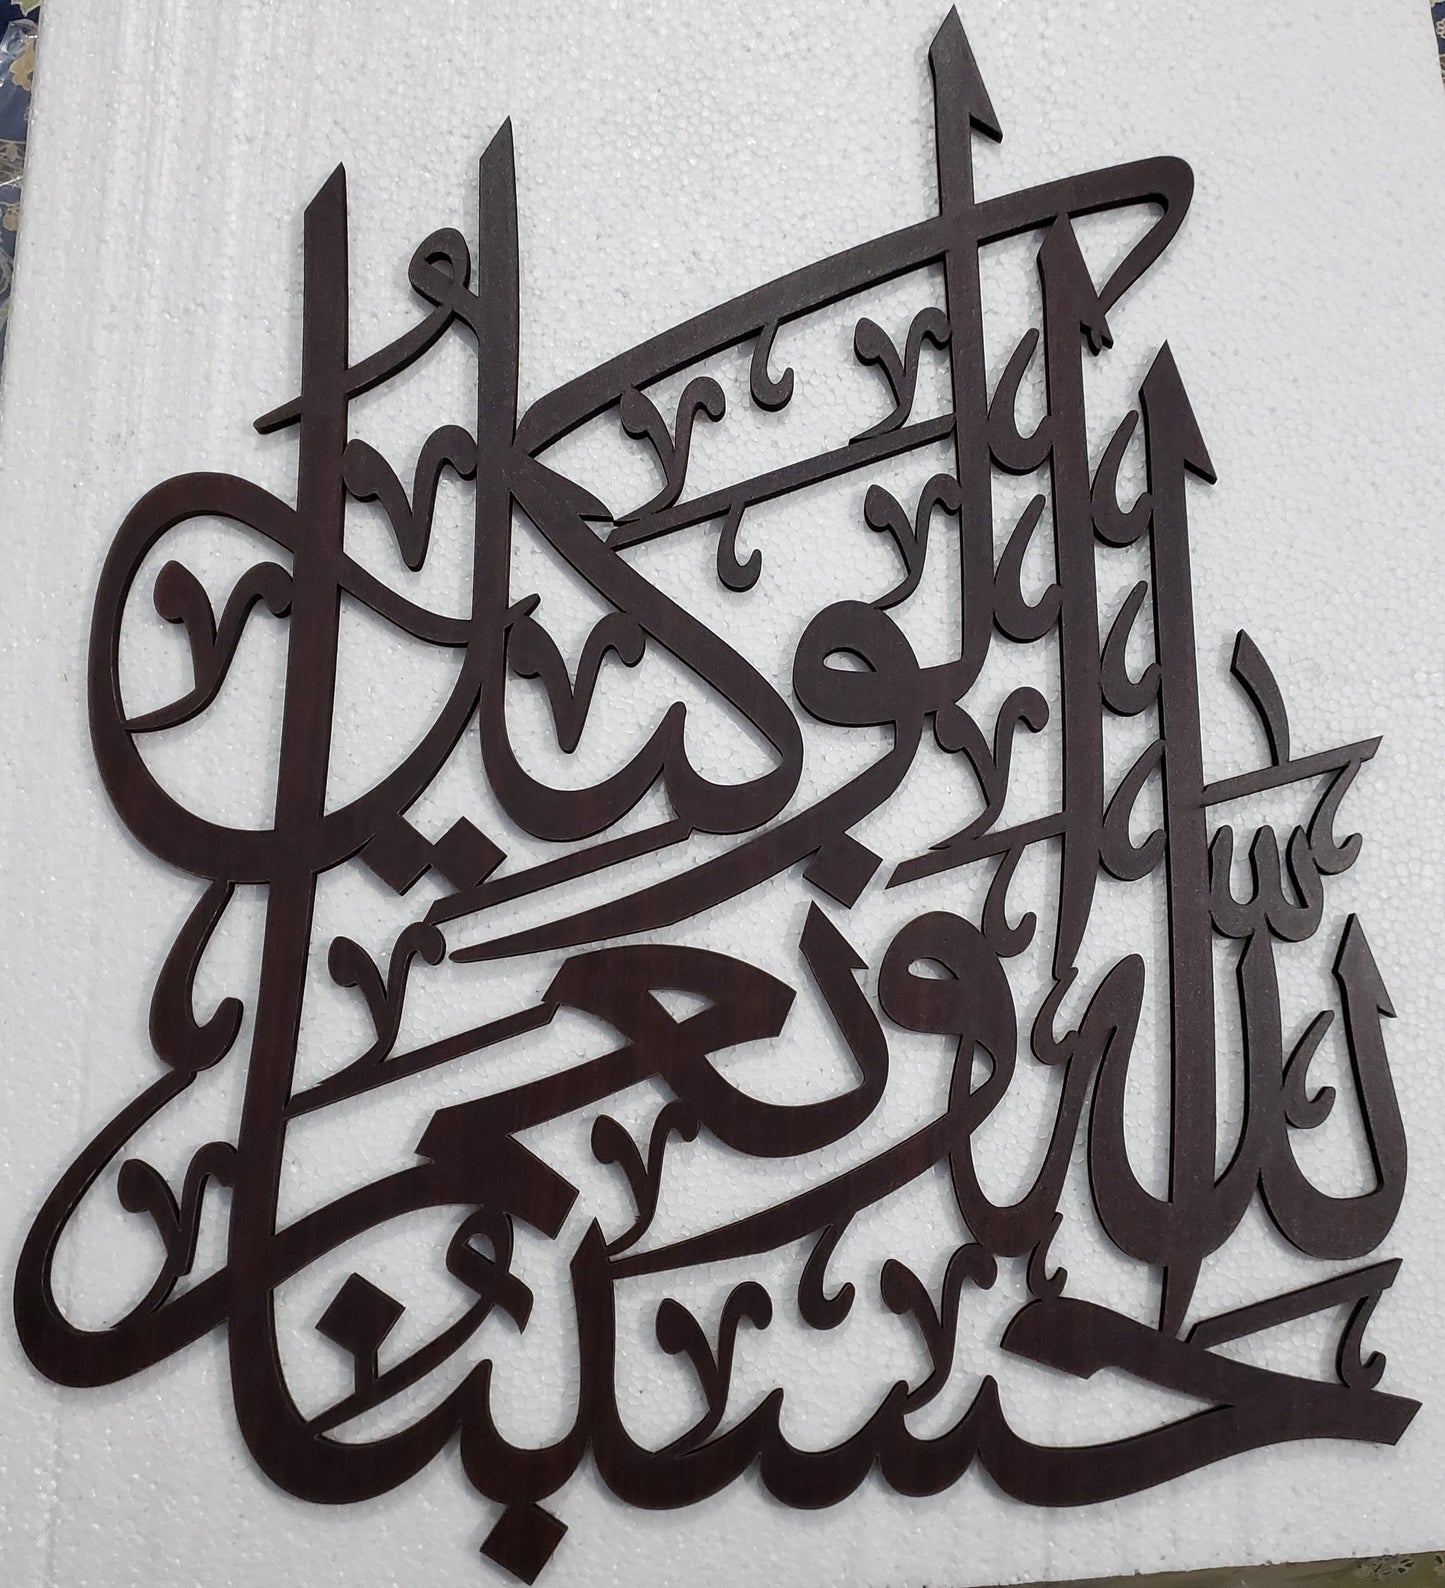 حَسْبُنَا
اللّٰهُ وَنِعْمَ
الْوَكِيلُ